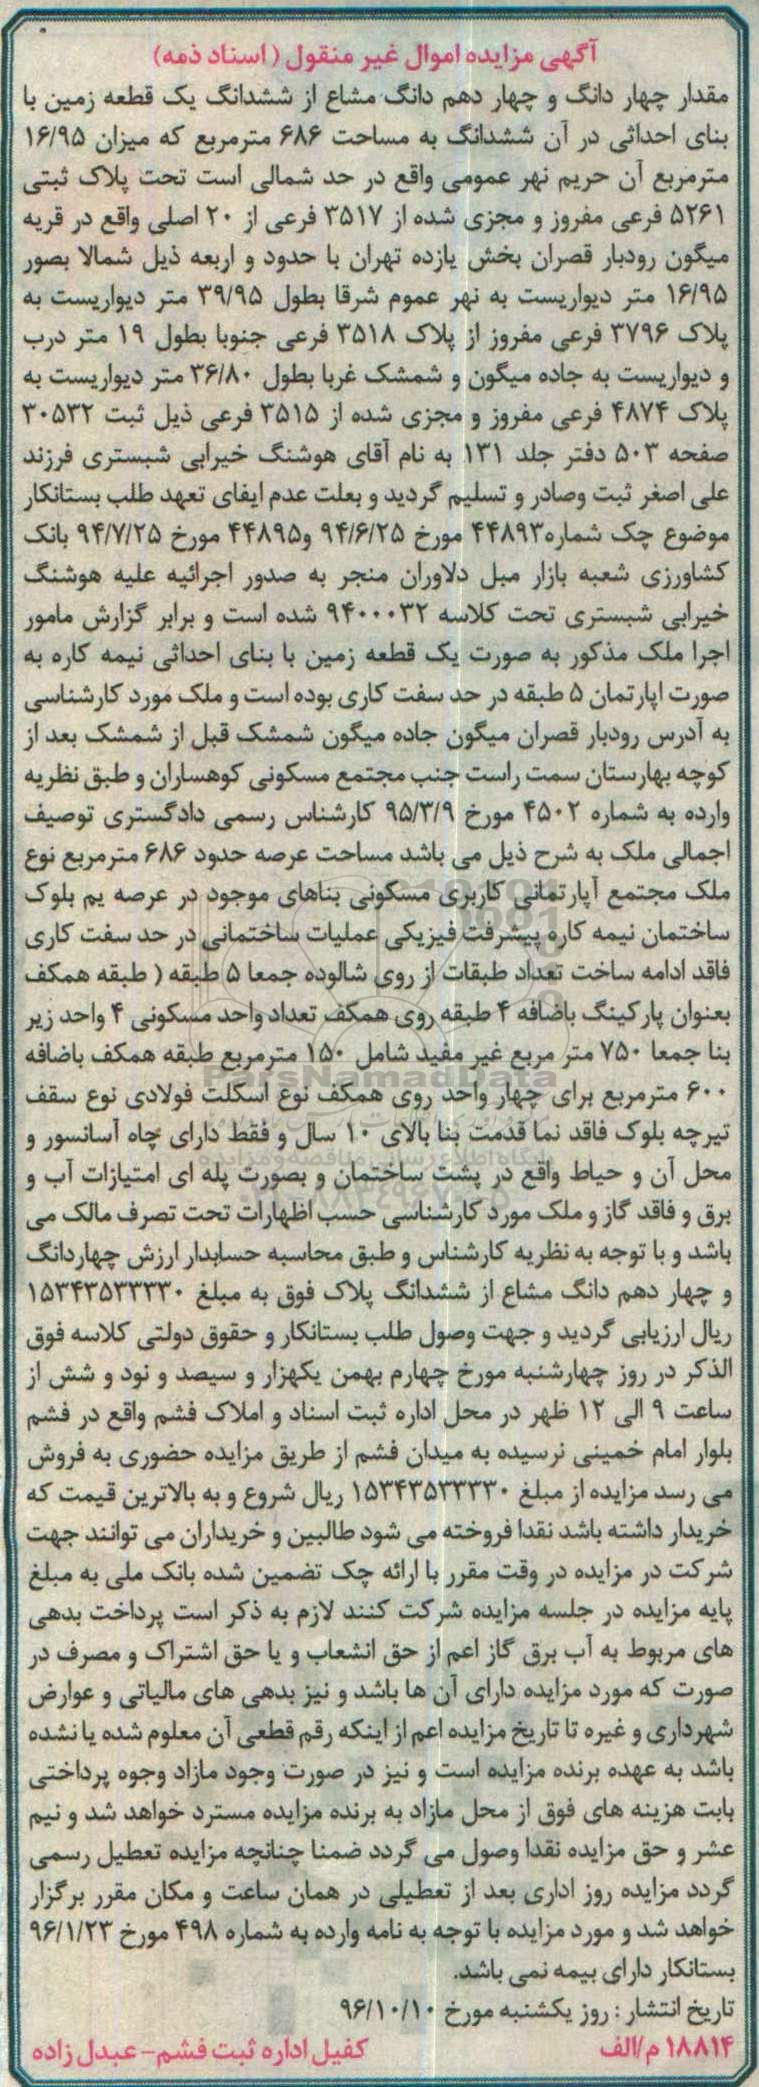 آگهی مزایده اموال غیر منقول (اسناد ذمه)
مقدار چهار دانگ و چهار دهم دانگ مشاع از ششدانگ یک قطعه زمین با
بنای احداثی در آن ششدانگ به مساحت ۶۸۶ مترمربع که میزان ۱۶/۹۵
مترمربع آن حریم نهر عمومی واقع در حد شمالی است تحت پلاک ثبتی
۵۲۶۱ فرعی مفروز و مجزی شده از ۳۵۱۷ فرعی از ۲۰ اصلی واقع در قریه
میگون رودبار قصران بخش یازده تهران با حدود و اربعه ذیل شمالا بصور
۱۶/۹۵ متر دیواریست به نهر عموم شرقا بطول ۳۹/۹۵ متر دیواریست به
پلاک ۳۷۹۶ فرعی مفروز از پلاک ۳۵۱۸ فرعی جنوبا بطول ۱۹ متر درب
و دیواریست به جاده میگون و شمشک غربا بطول ۳۶/۸۰ متر دیواریست به
پلاک ۴۸۷۴ فرعی مفروز و مجزی شده از ۳۵۱۵ فرعی ذیل ثبت ۳۰۵۳۲
صفحه ۵۰۳ دفتر جلد ۱۳۱ به نام آقای هوشنگ خیرابی شبستری فرزند
علی اصغر ثبت وصادر و تسلیم گردید و بعلت عدم ایفای تعهد طلب بستانکار
موضوع چک شماره۴۴۸۹۳ مورخ ۹۴/۶/۲۵ و۴۴۸۹۵ مورخ ۹۴/۷/۲۵ بانک
کشاورزی شعبه بازار مبل دلاوران منجر به صدور اجرائیه علیه هوشنگ
خیرابی شبستری تحت کلاسه ۹۴۰۰۰۳۲ شده است و برابر گزارش مامور
اجرا ملک مذکور به صورت یک قطعه زمین با بنای احداثی نیمه کاره به
صورت اپارتمان ۵ طبقه در حد سفت کاری بوده است و ملک مورد کارشناسی
به آدرس رودبار قصران میگون جاده میگون شمشک قبل از شمشک بعد از
کوچه بهارستان سمت راست جنب مجتمع مسکونی کوهساران و طبق نظریه
وارده به شماره ۴۵۰۲ مورخ ۹۵/۳/۹ کارشناس رسمی دادگستری توصیف
اجمالی ملک به شرح ذیل می باشد مساحت عرصه حدود ۶۸۶ مترمربع نوع
ملک مجتمع آپارتمانی کاربری مسکونی بناهای موجود در عرصه یم بلوک
ساختمان نیمه کاره پیشرفت فیزیکی عملیات ساختمانی در حد سفت کاری
فاقد ادامه ساخت تعداد طبقات از روی شالوده جمعا ۵ طبقه ( طبقه همکف
بعنوان پارکینگ باضافه ۴ طبقه روی همکف تعداد واحد مسکونی ۴ واحد زیر
بنا جمعا ۷۵۰ متر مربع غیر مفید شامل ۱۵۰ مترمربع طبقه همکف باضافه
۶۰۰ مترمربع برای چهار واحد روی همکف نوع اسکلت فولادی نوع سقف
تیرچه بلوک فاقد نما قدمت بنا بالای ۱۰ سال و فقط دارای چاه آسانسور و
محل آن و حیاط واقع در پشت ساختمان و بصورت پله ای امتیازات آب و
برق و فاقد گاز و ملک مورد کارشناسی حسب اظهارات تحت تصرف مالک می
باشد و با توجه به نظریه کارشناس و طبق محاسبه حسابدار ارزش چهاردانگ
و چهار دهم دانگ مشاع از ششدانگ پلاک فوق به مبلغ ۱۵۳۴۳۵۳۳۳۳۰
ریال ارزیابی گردید و جهت وصول طلب بستانکار و حقوق دولتی کلاسه فوق
الذکر در روز چهارشنبه مورخ چهارم بهمن یکهزار و سیصد و نود و شش از
ساعت ۹ الی ۱۲ ظهر در محل اداره ثبت اسناد و املاک فشم واقع در فشم
بلوار امام خمینی نرسیده به میدان فشم از طریق مزایده حضوری به فروش
می رسد مزایده از مبلغ ۱۵۳۴۳۵۳۳۳۳۰ ریال شروع و به بالاترین قیمت که
خریدار داشته باشد نقدا فروخته می شود طالبین و خریداران می توانند جهت
شرکت در مزایده در وقت مقرر با ارائه چک تضمین شده بانک ملی به مبلغ
پایه مزایده در جلسه مزایده شرکت کنند لازم به ذکر است پرداخت بدهی
های مربوط به آب برق گاز اعم از حق انشعاب و یا حق اشتراک و مصرف در
صورت که مورد مزایده دارای آن ها باشد و نیز بدهی های مالیاتی و عوارض
شهرداری و غیره تا تاریخ مزایده اعم از اینکه رقم قطعی آن معلوم شده یا نشده
باشد به عهده برنده مزایده است و نیز در صورت وجود مازاد وجوه پرداختی
بابت هزینه های فوق از محل مازاد به برنده مزایده مسترد خواهد شد و نیم
عشر و حق مزایده نقدا وصول می گردد ضمنا چنانچه مزایده تعطیل رسمی
گردد مزایده روز اداری بعد از تعطیلی در همان ساعت و مکان مقرر برگزار
خواهد شد و مورد مزایده با توجه به نامه وارده به شماره ۴۹۸ مورخ ۹۶/۱/۲۳
بستانکار دارای بیمه نمی باشد.
تاریخ انتشار : روز یکشنبه مورخ ۹۶/۱۰/۱۰
۱۸۸۱۴ م/الف کفیل اداره ثبت فشم- عبدل زاده
ParsNamadData
پایگاه اطلاع رسانی مناقصه و مزایده